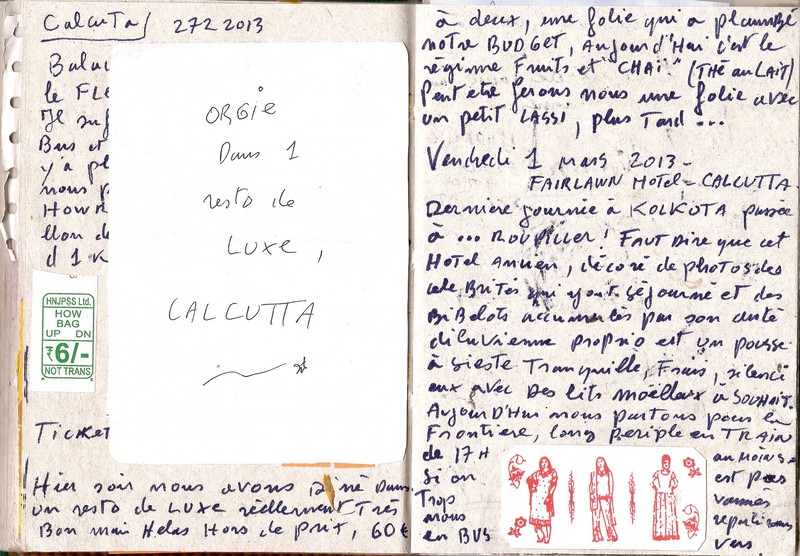 Calcuta 27 2 2013
le FLE
Il suf
Bus et
y'a pl
nous p
HOWR
llon de
d 1 K
ORGIE
Dans 1
resto de
LUXE,
CALCUTTA
HNJPSS Ltd.
HOW
BAG
UP DN
₹6/-
NOT TRANS
Ticket
Hier soir nous avons Diné Dans
un resto de LUXE réellement Très
Bon mais Helas Hors de Prix, 60 €
à deux, une folie qui a plumBé
notre BUDGET, Aujourd'Hui c'est le
régime Fruits et "CHAÏ" (THÉ au LAIT)
Peut etre ferons nous une folie avec
un petit LASSI, plus Tard ...
Vendredi 1 mars 2013 -
FAIRLAWN Hotel - CALCUTTA.
Derniere journée à KOLKOTA passée
à ... ROUPILLER! FAUT Dire que cet
Hotel Ancien, décoré de photos des
céleBrités qui y ont séjourné et des
BiBelots accumulés par son anté
diluvienne proprio est un pousse
à sieste Tranquille, Frais, silenci
eux avec Des lits moëlleux à SOUHAIT.
Aujourd'Hui nous partons pour la
Frontiere, long periple en TRAIN
de 17 H au moins -
si on est pas
Trop vannés
nous repartirons
en BUS vers